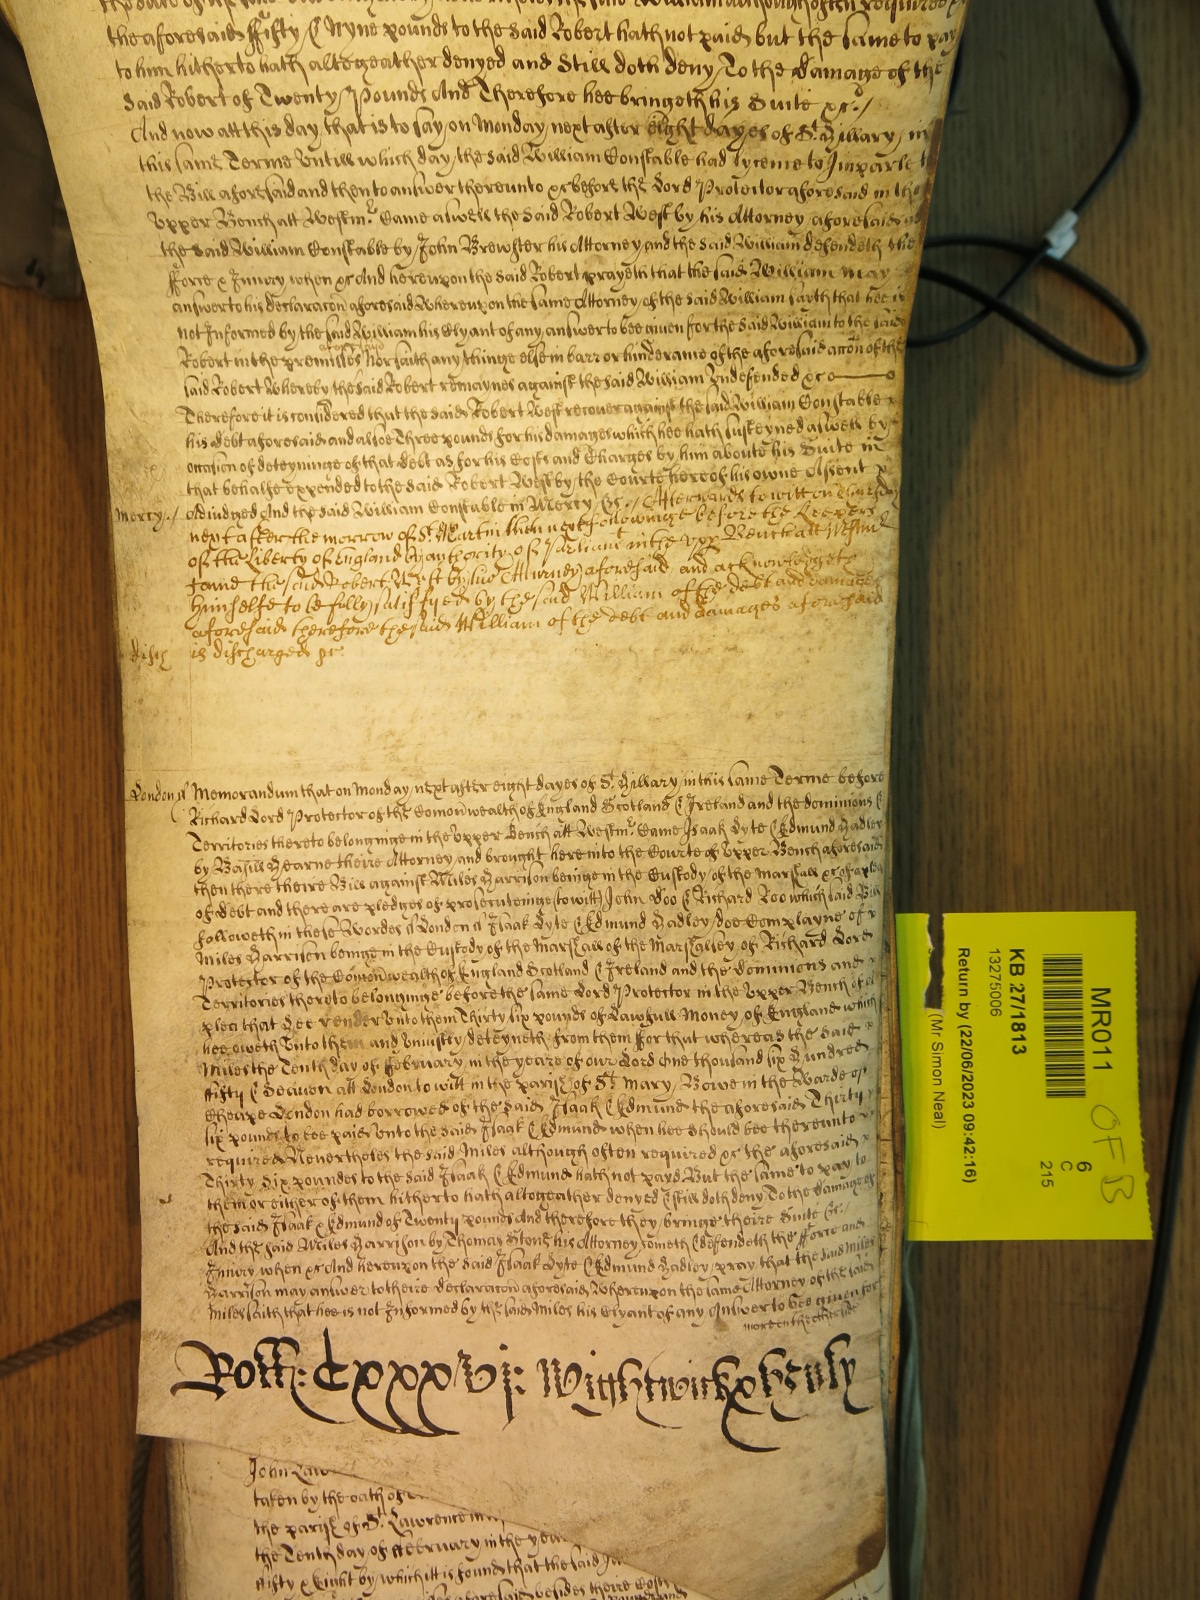 the aforesaid ffifty & Nyne pounds to the said Robert hath not paid but the same to pay
to him hitherto hath altogeather denyed and Still doth deny To the damage of the
said Robert of Twenty Pounds And Therefore hee bringeth his Suite &c /
And now att this day that is to say on Monday next after eight dayes of St Hillary in
this same Terme Untill which day the said William Constable had lycence to Imparle to
the Bill aforesaid and then to answer thereunto &c before the Lord Protector aforesaid in the
Upper Bench att Westmr Came aswell the said Robert West by his Attorney aforesaid as
the said William Constable by John Brewster his Attorney and the said William defendeth the
fforce & Injury when &c And hereupon the said Robert prayeth that the said William may
answer to his declaracon aforesaid Whereupon the same Attorney of the said William saith that hee is
not Informed by the said William his Clyant of any answer to bee given for the said William to the said
Robert in the premisses Nor saith any thinge else in barr or hinderance of the aforesaid accon of the
said Robert Whereby the said Robert remaynes against the said William Undefended &c
Therefore it is considered that the said Robert West recover against the said William Constable
his debt aforesaid and alsoe Three pounds for his damages which hee hath susteyned aswell by
occasion of deteyninge of that debt as for his Costs and Charges by him aboute his Suite in
that behalfe expended to the said Robert West by the Courte here of his owne Assent
Mercy / Adjudged And the said William Constable in Mercy &c / Afterwards to witt on Thursday
next after the morrow of St Martin then next followinge before the Keepers
of the Liberty of England by authority of Parliamt in the Upp Bench att Westmr
came the said Robert West by his Attorney aforesaid and acknowledgeth
himselfe to be fully satisfyed by the said William of the debt and damages
aforesaid therefore the said William of the debt and damages aforesaid
disch is discharged &c
London ss Memorandum that on Monday next after eight dayes of St Hillary in this same Terme before
Richard Lord Protector of the Comonwealth of England Scotland & Ireland and the dominions &
Territories thereto belonginge in the Upper Bench att Westmr Came Isaak Dyte & Edmund Hadley
by Basill Hearne theire Attorney and brought here into the Courte of Upper Bench aforesaid
then there theire Bill against Miles Harrison beinge in the Custody of the Marshall &c of a plea
of debt and there are pledges of prosecuteinge (to witt) John Doo & Richard Roo which said Bill
followeth in these Wordes ss London ss Isaak Dyte & Edmund Hadley doe Complayne of
Miles Harrison beinge in the Custody of the Marshall of the Marshalsey of Richard Lord
Protector of the Comonwealth of England Scotland & Ireland and the dominions and
Territories thereto belonginge before the same Lord Protector in the Upper Bench of a
plea that Hee render Unto them Thirty six pounds of Lawfull Money of England which
hee oweth Unto them and Uniustly deteyneth from them ffor that whereas the said
Miles the Tenth day of ffebruary in the yeare of our Lord One thousand six Hundred
ffifty & Seaven att London to witt in the parish of St Mary Bowe in the Warde of
Cheape London had borrowed of the said Isaak & Edmund the aforesaid Thirty
six pounds to bee paid Unto the said Isaak & Edmund when hee should bee thereunto
required Nevertheles the said Miles although often required &c the aforesaid
Thirty Six poundes to the said Isaak & Edmund hath not payd But the same to pay to
them or either of them hitherto hath altogeather denyed & still doth deny To the damage of
the said Isaak & Edmund of Twenty pounds And therefore they bringe theire Suite &c /
And the said Miles Harrison by Thomas Stone his Attorney cometh & defendeth the fforce and
Injury when &c And hereupon the said Isaak Dyte & Edmund Hadley pray that the said Miles
Harrison may answer to theire declaracon aforesaid Whereupon the same Attorney of the said
Miles saith that hee is not Informed by the said Miles his Clyant of any Answer to bee given for
more on the other side
Rott: Cxxxvj: Wightwick & henly
John Law
taken by the oath of
the parish of St Lawrence in
the Tenth day of ffebruary in the yea
ffifty & Eight by which itt is found that the said
aforesaid besides theire Costs
MR011
6
C
215
OFB
KB 27/1813
13275006
Return by (22/06/2023 09:42:16)
(Mr. Simon Neal)